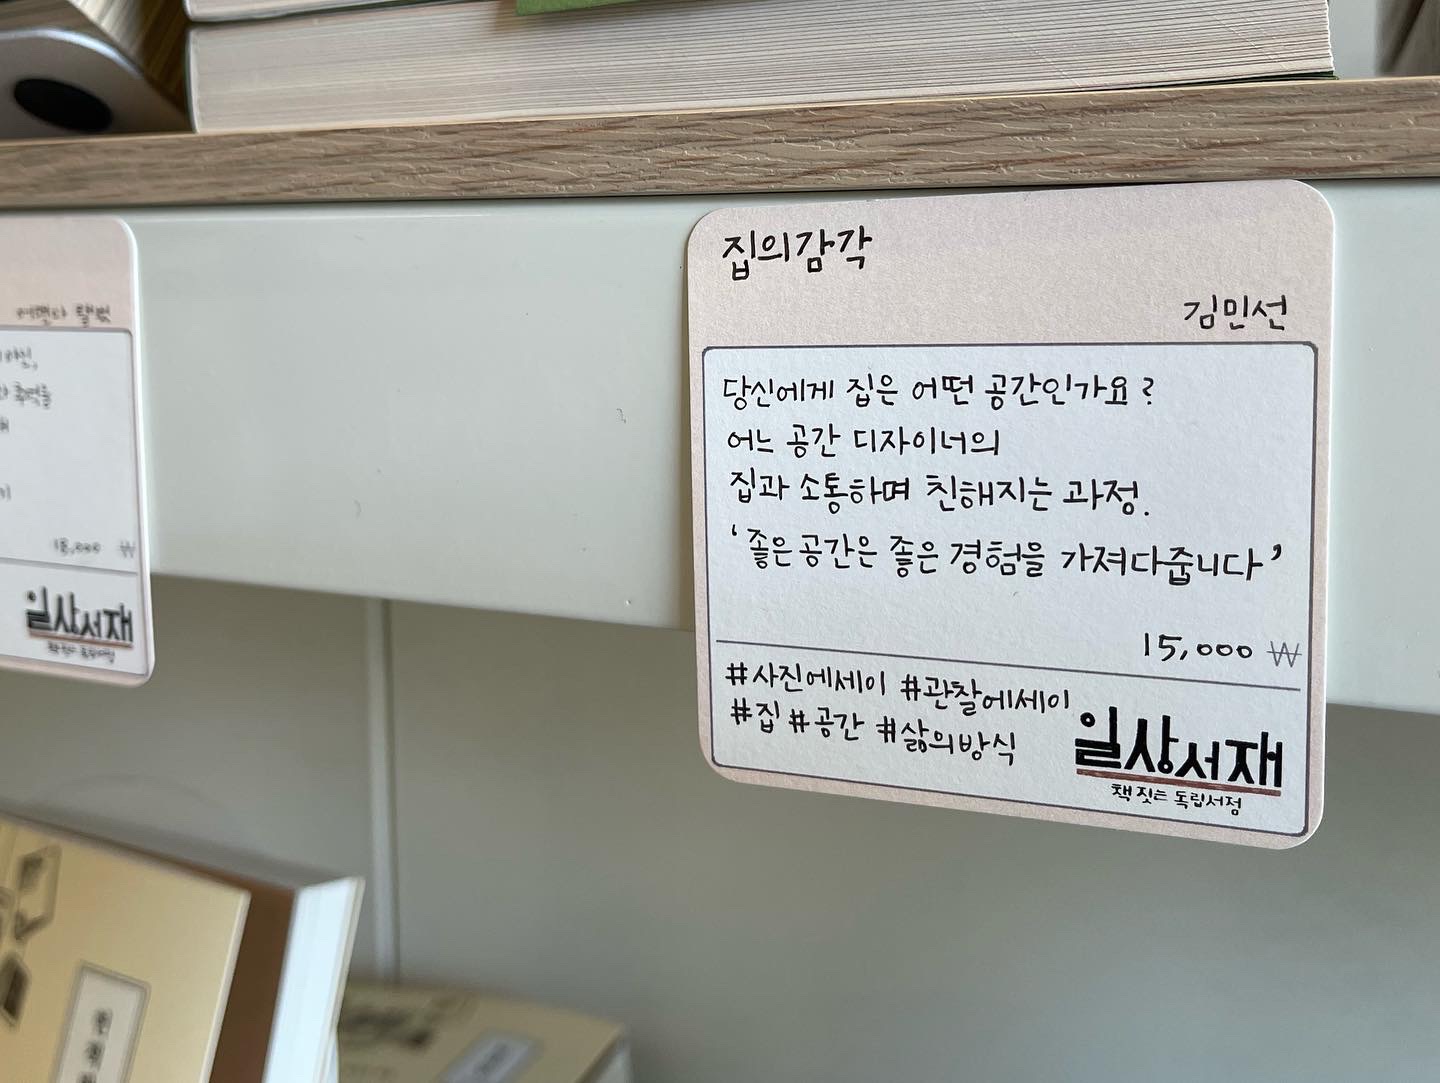 집의감각
김민선
당신에게 집은 어떤 공간인가요?
어느 공간 디자이너의
집과 소통하며 친해지는 과정.
'좋은공간은 좋은 경험을 가져다줍니다'
15,000 ₩
#사진에세이 #관찰에세이
#집 #공간 #삶의방식
일상서재
책 짓는 독립서점
18,000 ₩
일상서재